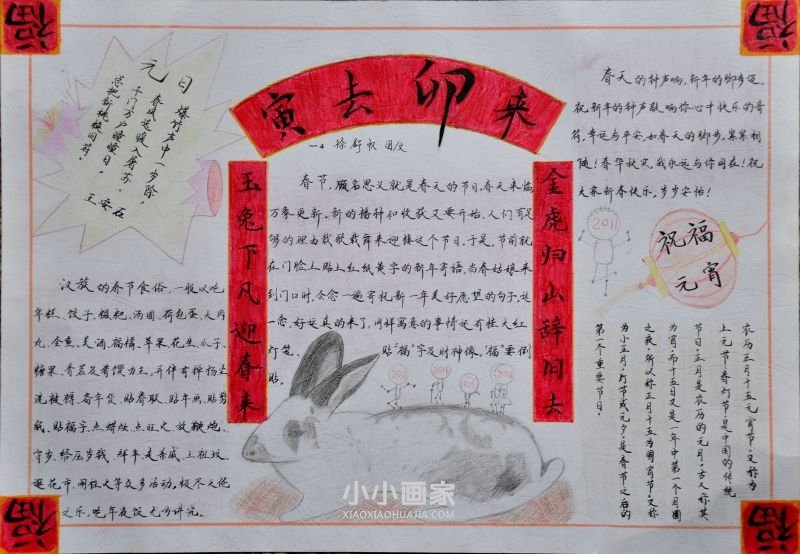 福
福
元日
爆竹声中一岁除,
春风送暖入屠苏,
千门万户曈曈日,
总把新桃换旧符。
王安石
寅去卯来
一4 徐舒 图/文
玉兔下凡迎春来
金虎归山辞旧去
春节,顾名思义就是春天的节日。春天来临
万象更新,新的播种和收获又要开始。人们有足
够的理由载歌载舞来迎接这个节日。于是,节前就
在门脸上贴上红纸黄字的新年寄语。当春姑娘来
到门口时,会念一遍寄托新一年美好愿望的句子,这
一念,好运真的来了,同样寓意的事情还有挂大红
灯笼、贴“福”字及财神像,“福”要倒
贴。
春天的钟声响,新年的脚步迈,
祝新年的钟声敲响你心中快乐的音
符,幸运与平安,如春天的脚步,紧紧相
随!春华秋实,我永远与你同在!祝
大家新春快乐,步步安怡!
2011
祝福
元宵
汉族的春节食俗,一般以吃
年糕、饺子、糍粑、汤圆、荷包蛋、大肉
丸、全鱼、美酒、福橘、苹果、花生、瓜子、
糖果、香茗及肴馔为主,并伴有掸扬尘
洗被褥、备年货、贴春联、贴年画、贴剪
纸、贴福字、点蜡烛、点旺火、放鞭炮、
守岁、给压岁钱、拜年、走亲戚、上祖坟、
逛花市、闹社火等众多活动,极尽天伦
之乐,吃年夜饭尤为讲究。
农历正月十五元宵节,又称为
上元节、春灯节,是中国的传统
节日。正月是农历的元月,古人称其
为宵,而十五日又是一年中第一个月圆
之夜,所以称正月十五为元宵节。又称
为小正月、灯节或元夕,是春节之后的
第一个重要节日。
2011
2011
2011
2011
小小画家
XIAOXIAOHUAJIA.COM
福
福